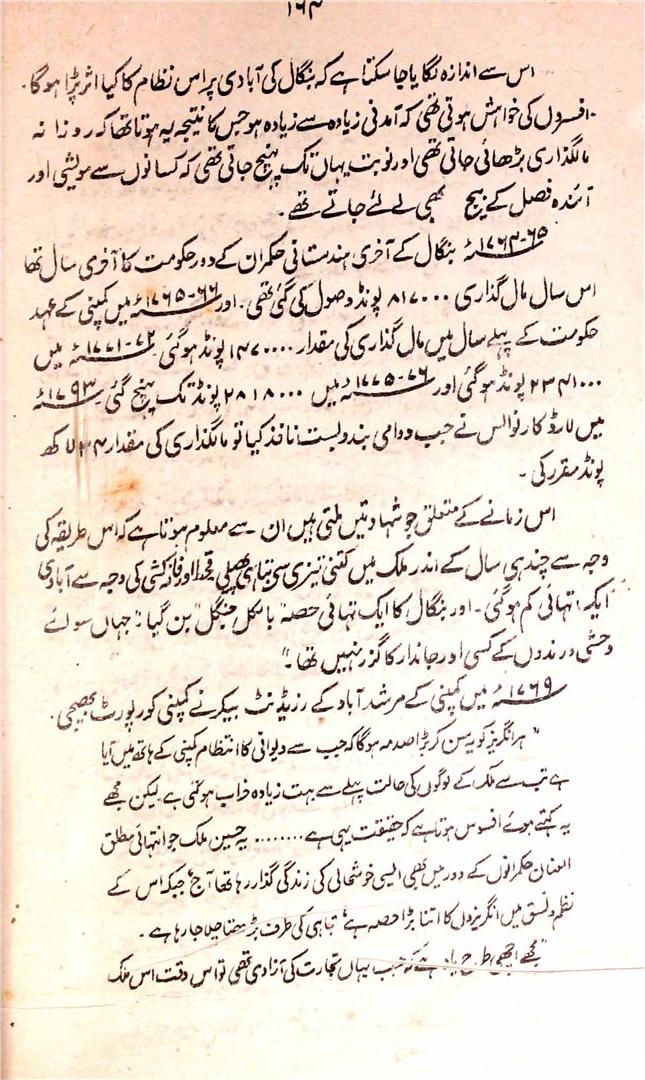 ۱۶۴
اس سے اندازہ لگایا جا سکتا ہے کہ بنگال کی آبادی پر اس نظام کا کیا اثر پڑا ہوگا۔
افسروں کی خواہش ہوتی تھی کہ آمدنی زیادہ سے زیادہ ہو جس کا نتیجہ یہ ہوتا تھا کہ روزانہ
مالگذاری بڑھائی جاتی تھی اور نوبت یہاں تک پہنچ جاتی تھی کہ کسانوں سے مویشی اور
آئندہ فصل کے بیج بھی لے لئے جاتے تھے۔
۶۵-۱۷۶۴ء بنگال کے آخری ہندستانی حکمران کے دور حکومت کا آخری سال تھا
اس سال مال گذاری ۸۱۷۰۰۰ پونڈ وصول کی گئی تھی۔ اور ۶۶-۱۷۶۵ء میں کمپنی کے عہد
حکومت کے پہلے سال میں مال گذاری کی مقدار ۱۴۷۰۰۰۰ پونڈ ہوگئی۔ ۷۲-۱۷۷۱ء میں
۲۳۴۱۰۰۰ پونڈ ہوگئی اور ۷۶-۱۷۷۵ء میں ۲۸۱۸۰۰۰ پونڈ تک پہنچ گئی ۱۷۹۳ء
میں لارڈ کارنوالس نے جب دوامی بندوبست نافذ کیا تو مالگذاری کی مقدار ۳۴ لاکھ
پونڈ مقرر کی۔
اس زمانے کے متعلق جو شہادتیں ملتی ہیں ان سے معلوم ہوتا ہے کہ اس طریقہ کی
وجہ سے چند ہی سال کے اندر ملک میں کتنی تیزی سے تباہی پھیلی قحط اور فاقہ کشی کی وجہ سے آبادی
ایک تہائی کم ہوگئی۔ اور بنگال کا ایک تہائی حصہ "بالکل جنگل" بن گیا "جہاں سوائے
وحشی درندوں کے کسی اور جاندار کا گزر نہیں تھا۔"
۱۷۶۹ء میں کمپنی کے مرشد آباد کے رزیڈنٹ بیکر نے کمپنی کو رپورٹ بھیجی۔
"ہر انگریز کو یہ سن کر بڑا صدمہ ہوگا کہ جب سے دیوانی کا انتظام کمپنی کے ہاتھ میں آیا
ہے تب سے ملک کے لوگوں کی حالت پہلے سے بہت زیادہ خراب ہوگئی ہے لیکن مجھے
یہ کہتے ہوئے افسوس ہوتا ہے کہ حقیقت یہی ہے ........ یہ حسین ملک جو انتہائی مطلق
العنان حکمرانوں کے دور میں بھی ایسی خوشحالی کی زندگی گذار رہا تھا آج، جبکہ اس کے
نظم و نسق میں انگریزوں کا اتنا بڑا حصہ ہے، تباہی کی طرف بڑھتا چلا جا رہا ہے۔
"مجھے اچھی طرح یاد ہے کہ جب یہاں تجارت کی آزادی تھی تو اس وقت اس ملک